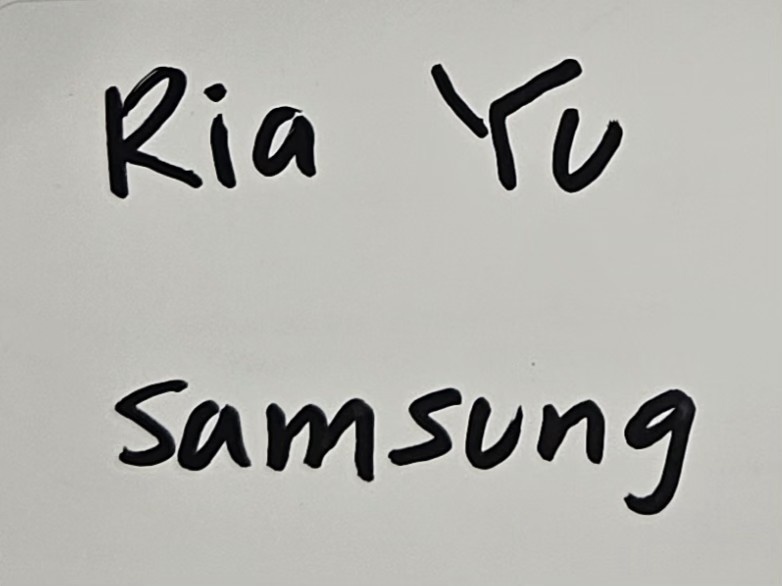 Ria Yu
Samsung